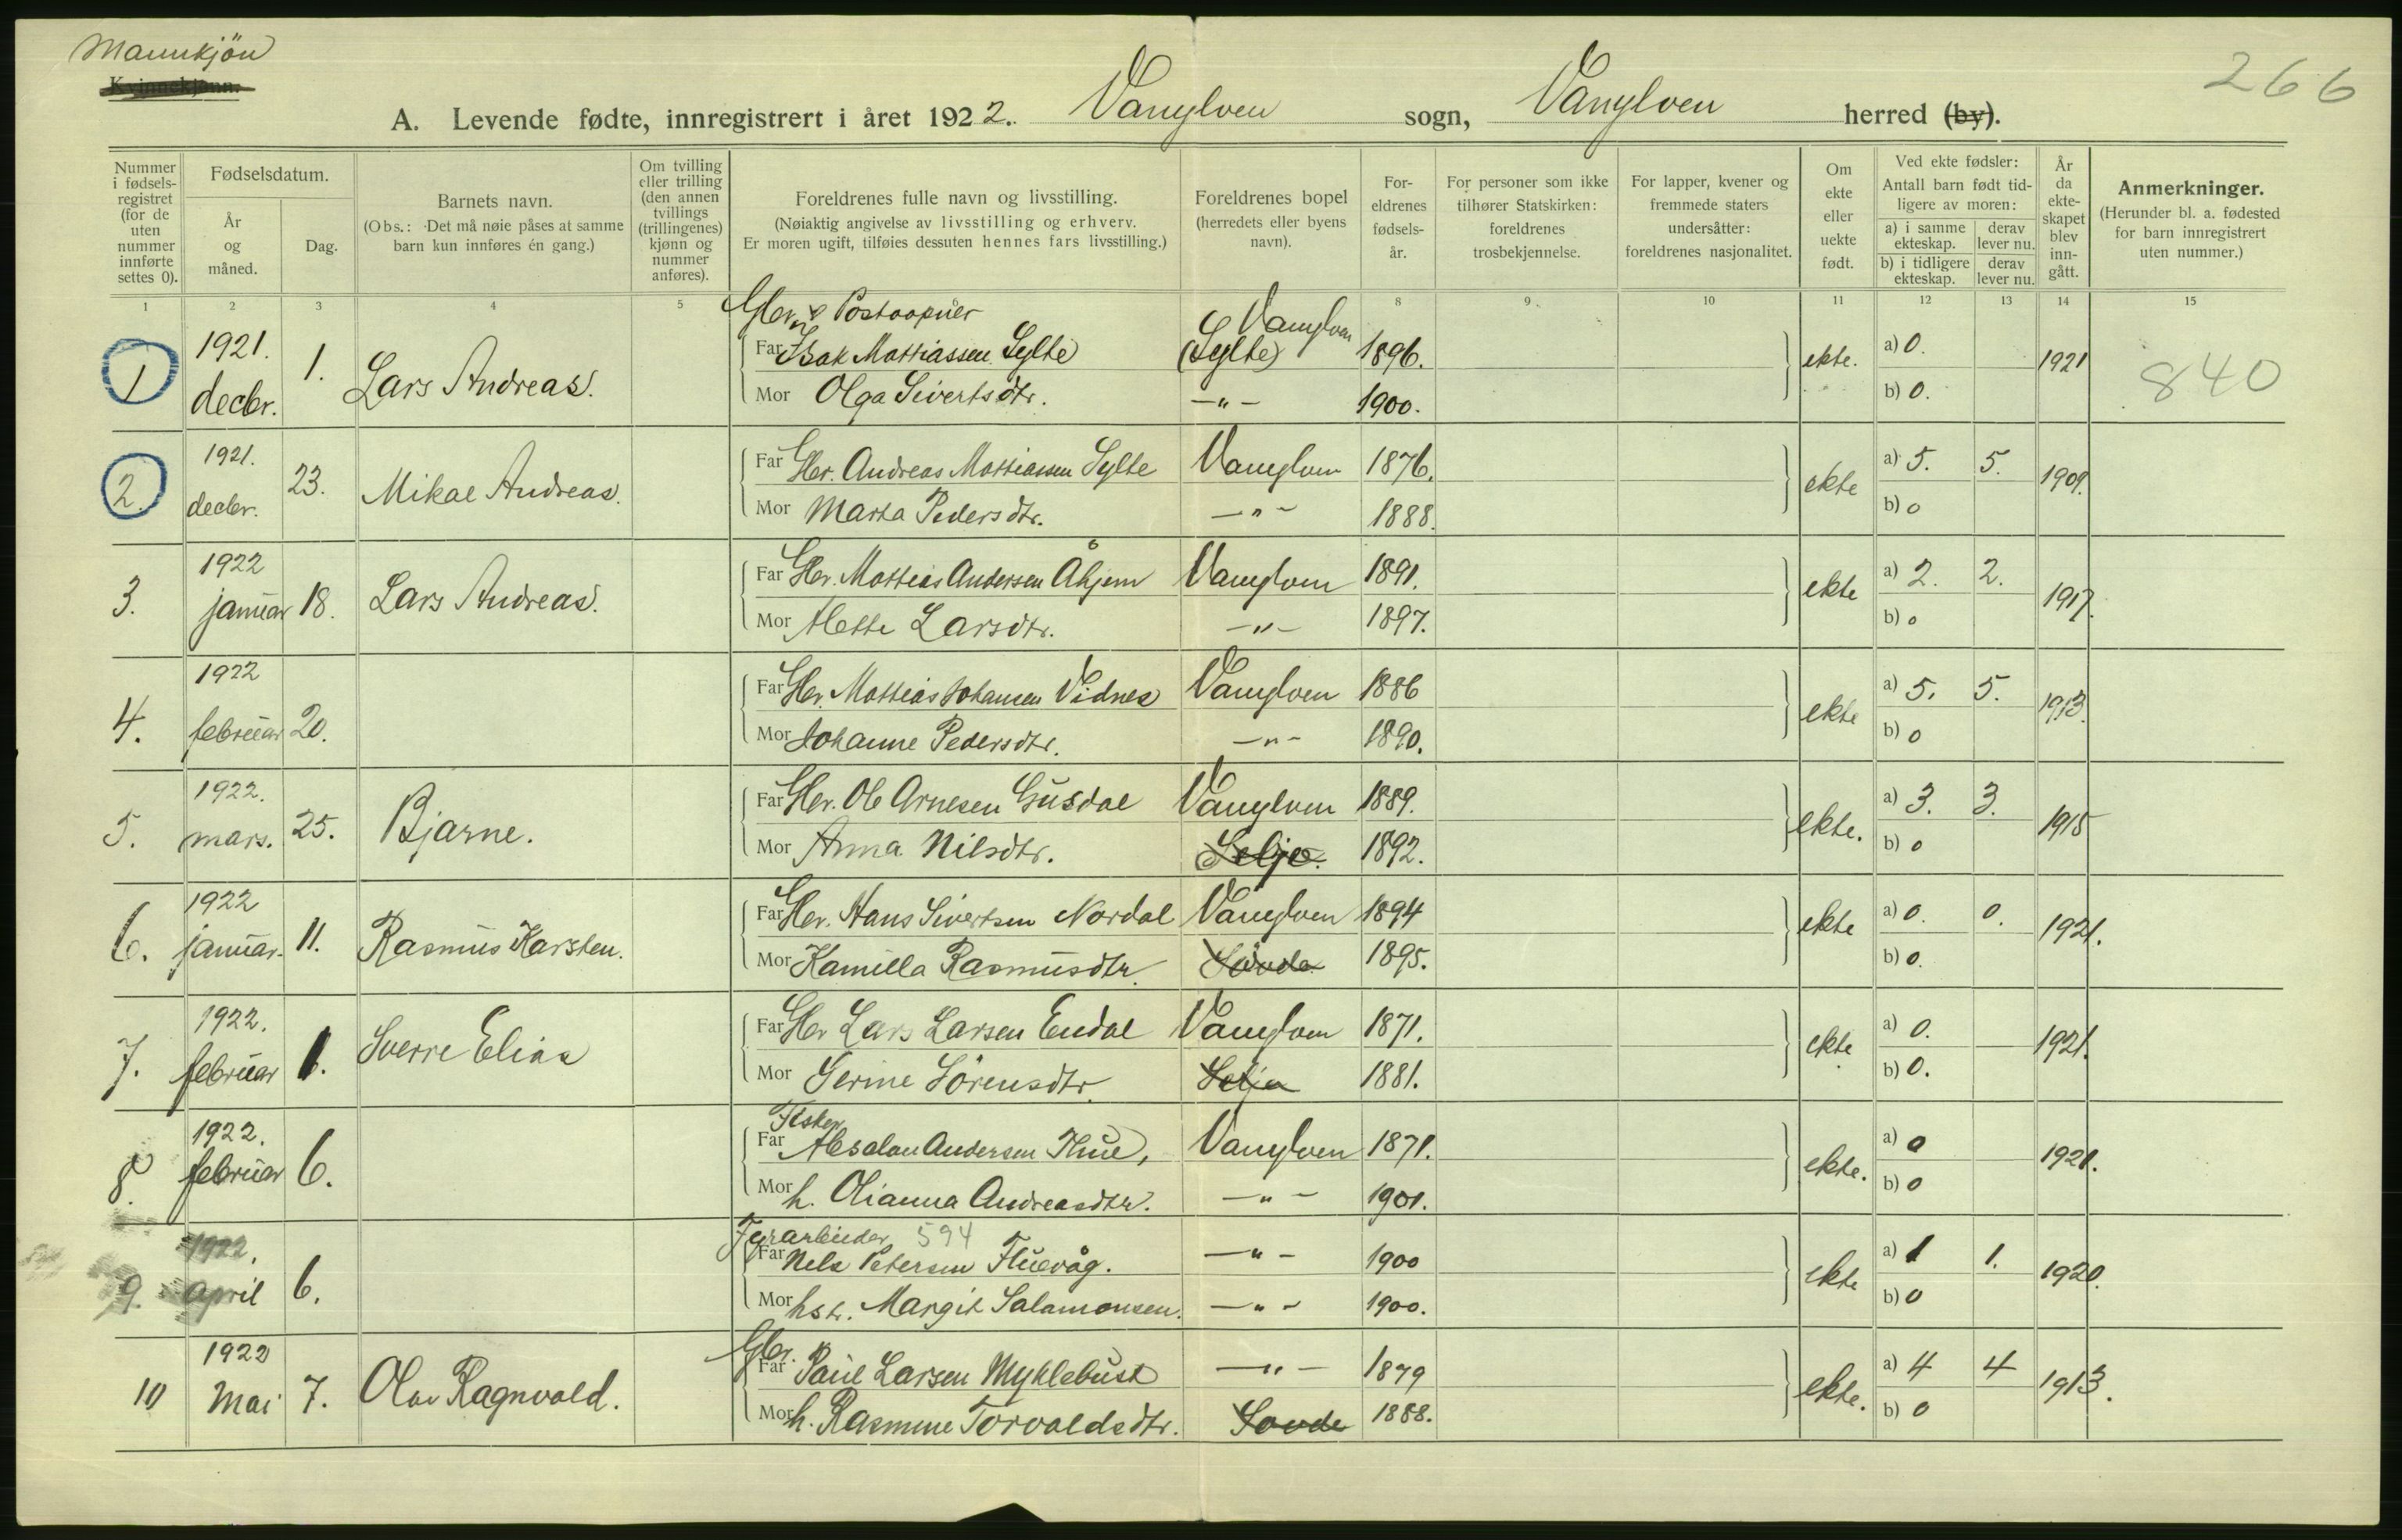 Mannkjön
Kvinnekjønn.
266
A. Levende fødte, innregistrert i året 1922. Vanylven sogn, Vanylven herred (by).
Nummer i fødsels-registret (for de uten nummer innførte settes 0).
Fødselsdatum.
År og måned.
Dag.
Barnets navn.
(Obs.: Det må nøie påses at samme barn kun innføres én gang.)
Om tvilling eller trilling (den annen tvillings (trillingenes) kjønn og nummer anføres).
Foreldrenes fulle navn og livsstilling.
(Nøiaktig angivelse av livsstilling og erhverv.
Er moren ugift, tilføies dessuten hennes fars livsstilling.)
Foreldrenes bopel
(herredets eller byens navn).
For-eldrenes fødsels-år.
For personer som ikke tilhører Statskirken: foreldrenes trosbekjennelse.
For lapper, kvener og fremmede staters undersåtter: foreldrenes nasjonalitet.
Om ekte eller uekte født.
Ved ekte fødsler:
Antall barn født tid-ligere av moren:
a) i samme ekteskap. derav lever nu.
b) i tidligere ekteskap. derav lever nu.
År da ekte-skapet blev inn-gått.
Anmerkninger.
(Herunder bl. a. fødested for barn innregistrert uten nummer.)
1 2 3 4 5 8 9 10 11 12 13 14 15
Gbr. & Postaapner
1 1921. decbr. 1. Lars Andreas. Far Isak Mattiassen Sylte Vanylven (Sylte) 1896. ekte. a) 0. 1921 840
Mor Olga Sivertsdtr. —"— 1900. b) 0.
2. 1921. decbr. 23. Mikal Andreas. Far Gbr. Andreas Mattiassen Sylte Vanylven 1876. ekte a) 5. 5. 1909.
Mor Marta Pedersdtr. —"— 1888. b) 0
3. 1922 januar 18. Lars Andreas. Far Gbr. Mattias Andersen Åhjem Vanylven 1891. ekte a) 2. 2. 1917.
Mor Mette Larsdtr. —"— 1897. b) 0
4. 1922 februar 20. Far Gbr. Mattias Johansen Vidnes Vanylven 1886 ekte a) 5. 5. 1913.
Mor Johanne Pedersdtr. —"— 1890. b) 0
5. 1922. mars. 25. Bjarne. Far Gbr. Ole Arnesen Gusdal Vanylven 1889. ekte. a) 3. 3. 1915
Mor Anna Nilsdtr. Selje. 1892. b) 0
6. 1922 januar. 11. Rasmus Karsten. Far Gbr. Hans Sivertsen Nordal Vanylven 1894 ekte a) 0. 0. 1921.
Mor Kamilla Rasmusdtr. Søvde 1895. b) 0.
7. 1922. februar 1. Sverre Elias Far Gbr Lars Larsen Eudal Vanylven 1871. ekte a) 0. 1921.
Mor Gerine Sörensdtr. Selje 1881. b) 0.
Fisker
8. 1922. februar 6. Far Absalon Andersen Thue, Vanylven 1871. ekte. a) 0 1921.
Mor h. Olianna Andreasdtr. —"— 1901. b) 0
Fyrarbeider 594
9. 1922. april 6. Far Nels Petersen Fluevåg. —"— 1900 ekte a) 1 1. 1920.
Mor hstr. Margit Salamonsen. —"— 1900. b) 0
Gbr.
10 1922 Mai 7. Olav Ragnvald. Far Paul Larsen Myklebust —"— 1879 ekte. a) 4 4 1913.
Mor h. Rasmine Torvaldsdtr. Sovde 1888. b) 0